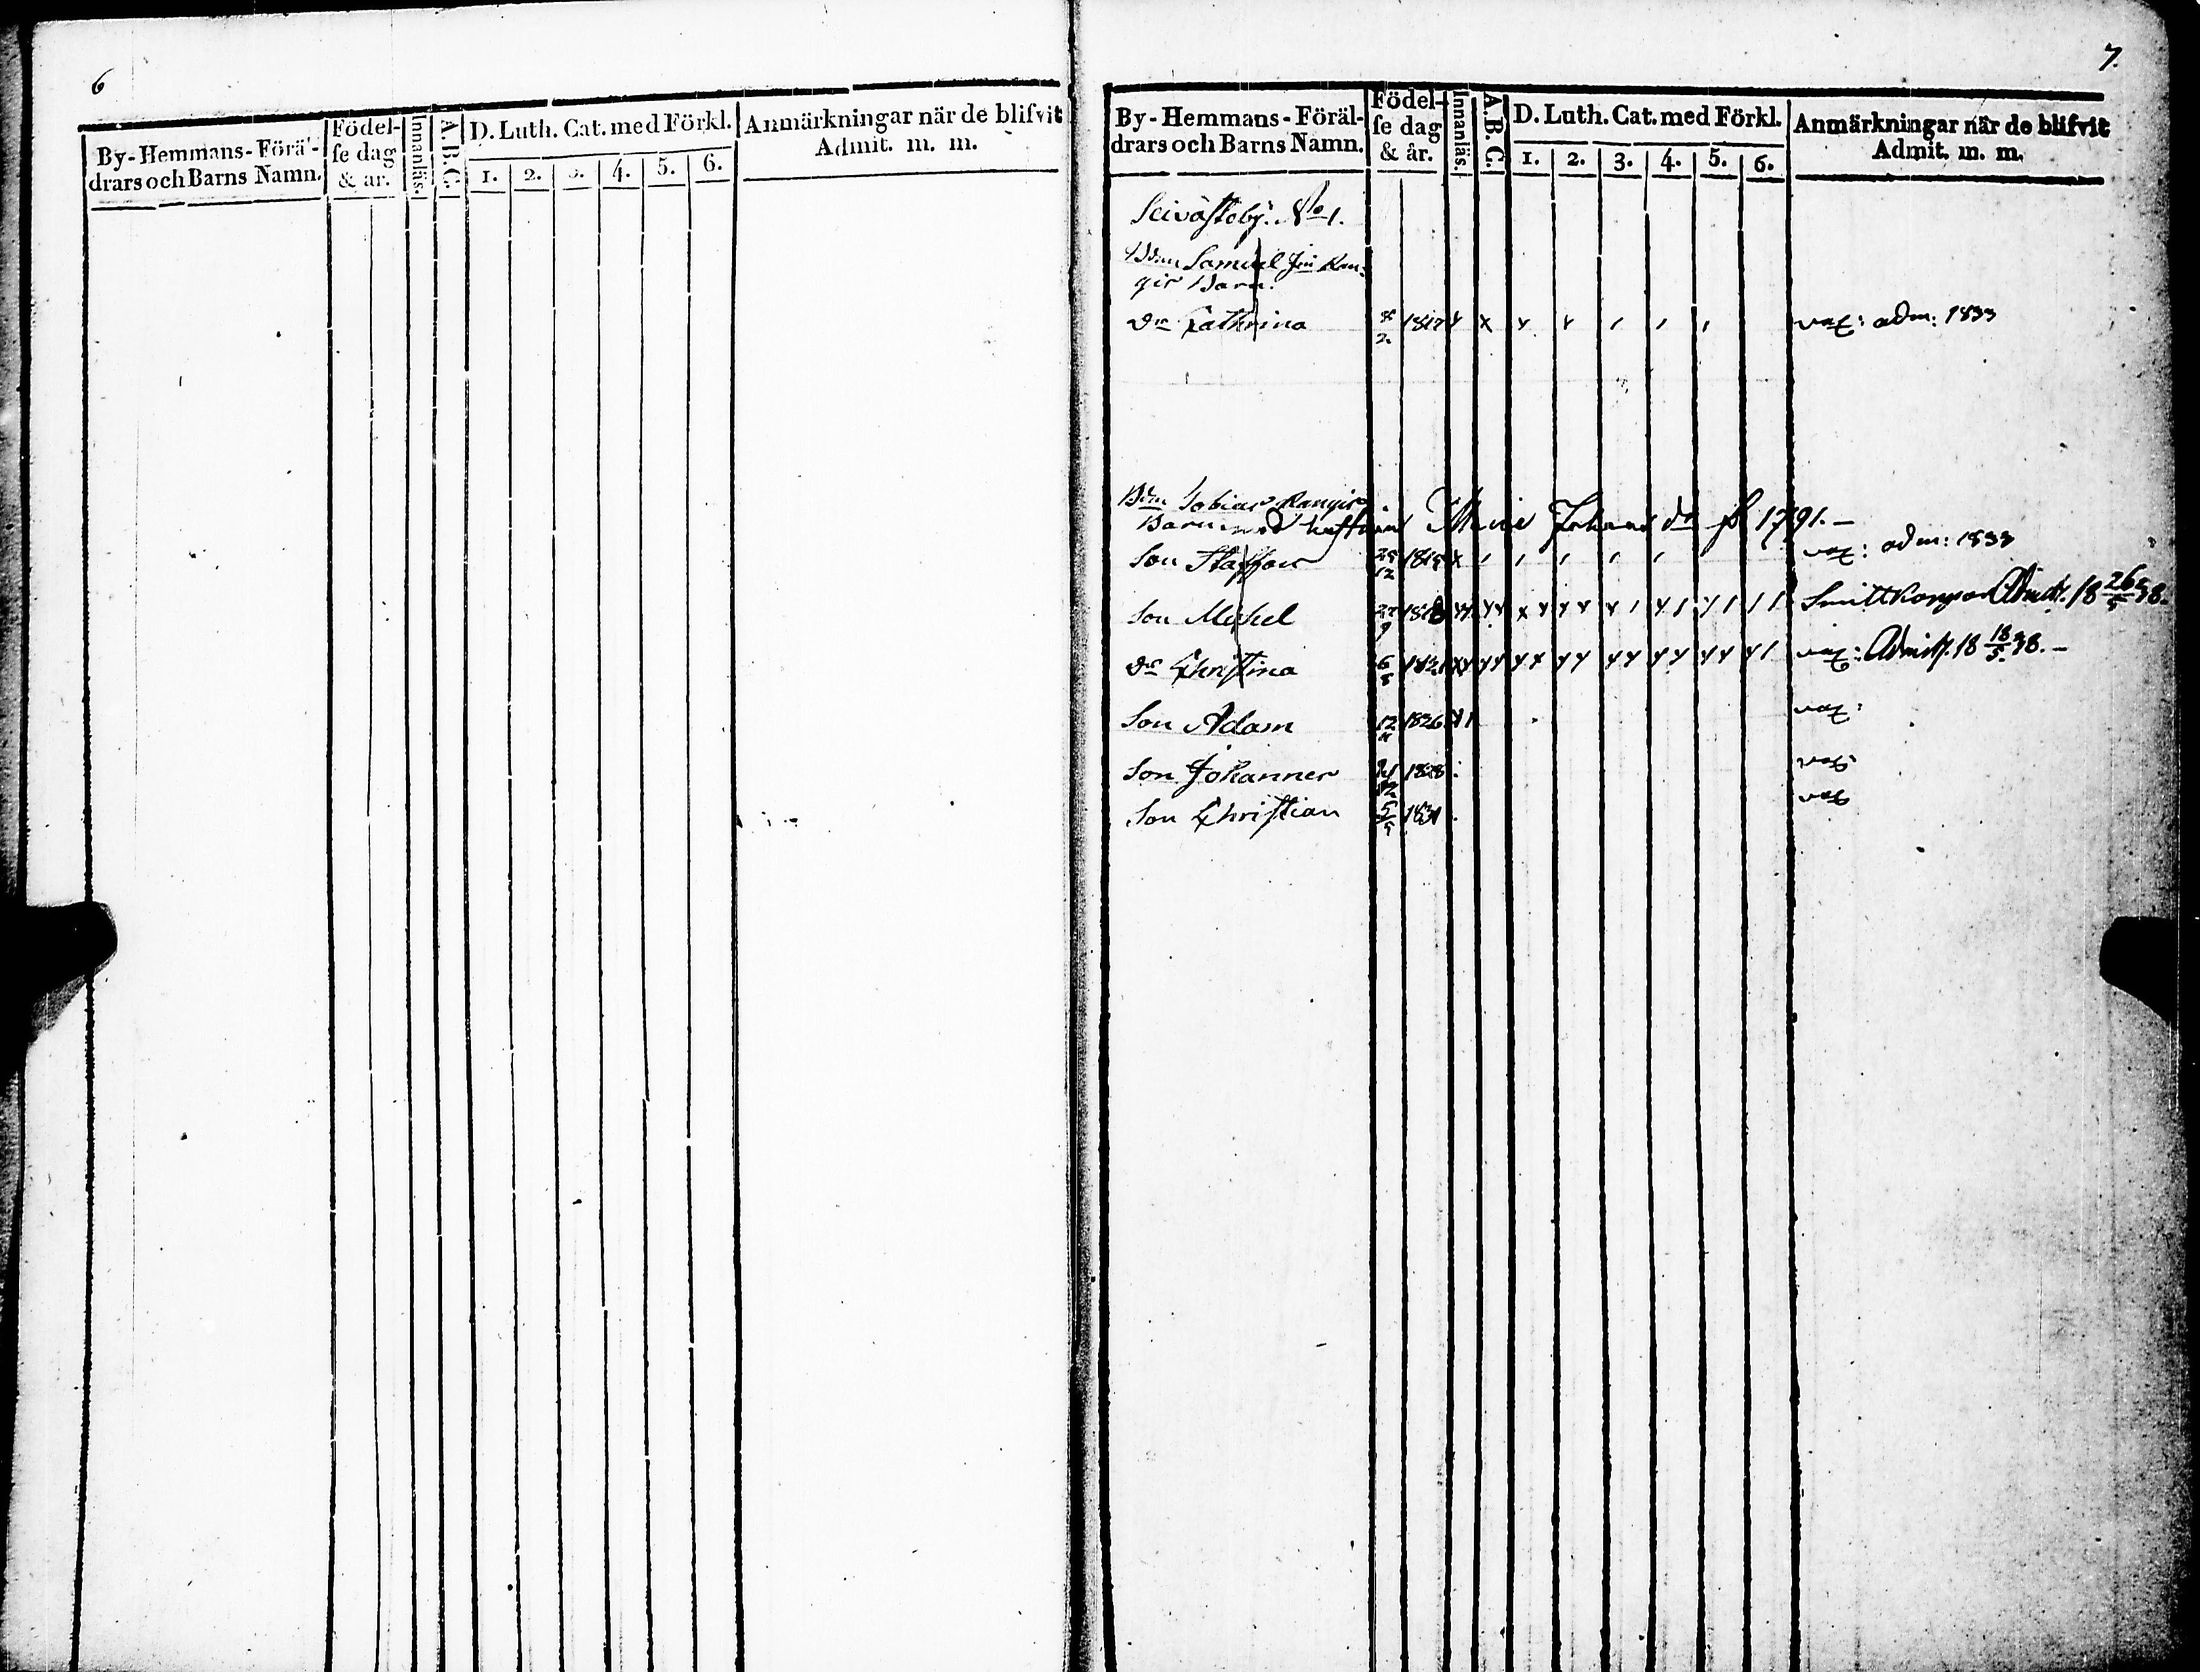 6
By-Hemmans-Föräl-
drars och Barns Namn.
Födel-
se dag
& år.
Innanläs.
A.B.C.
D. Luth. Cat. med Förkl.
1. 2. 3. 4. 5. 6.
Anmärkningar när de blifvit
Admit. m. m.
7.
By-Hemmans-Föräl-
drars och Barns Namn.
Födel-
se dag
& år.
Innanläs.
A.B.C.
D. Luth. Cat. med Förkl.
1. 2. 3. 4. 5. 6.
Anmärkningar när de blifvit
Admit. m. m.
Seivästöby. No 1.
Bdn Samuel Jöns Kan-
gis Barn.
Dr Cathrina 8/2 1817 x x x x / / / vax: adm: 1833
Bdn Tobias Kangis
Barn med hustrun Johans dr f. 1791.
Son Staffan 25/12 1815 x / / / / / vax: adm: 1833
Son Michel 27/9 1818 Smittkoppor Admitt. 18 26/5 38.
Dr Christina 6/8 1821 vax: Admitt. 18 18/5 38.
Son Adam 1826 vax:
Son Johannes 1828 vax:
Son Christian 5/9 1831 vax